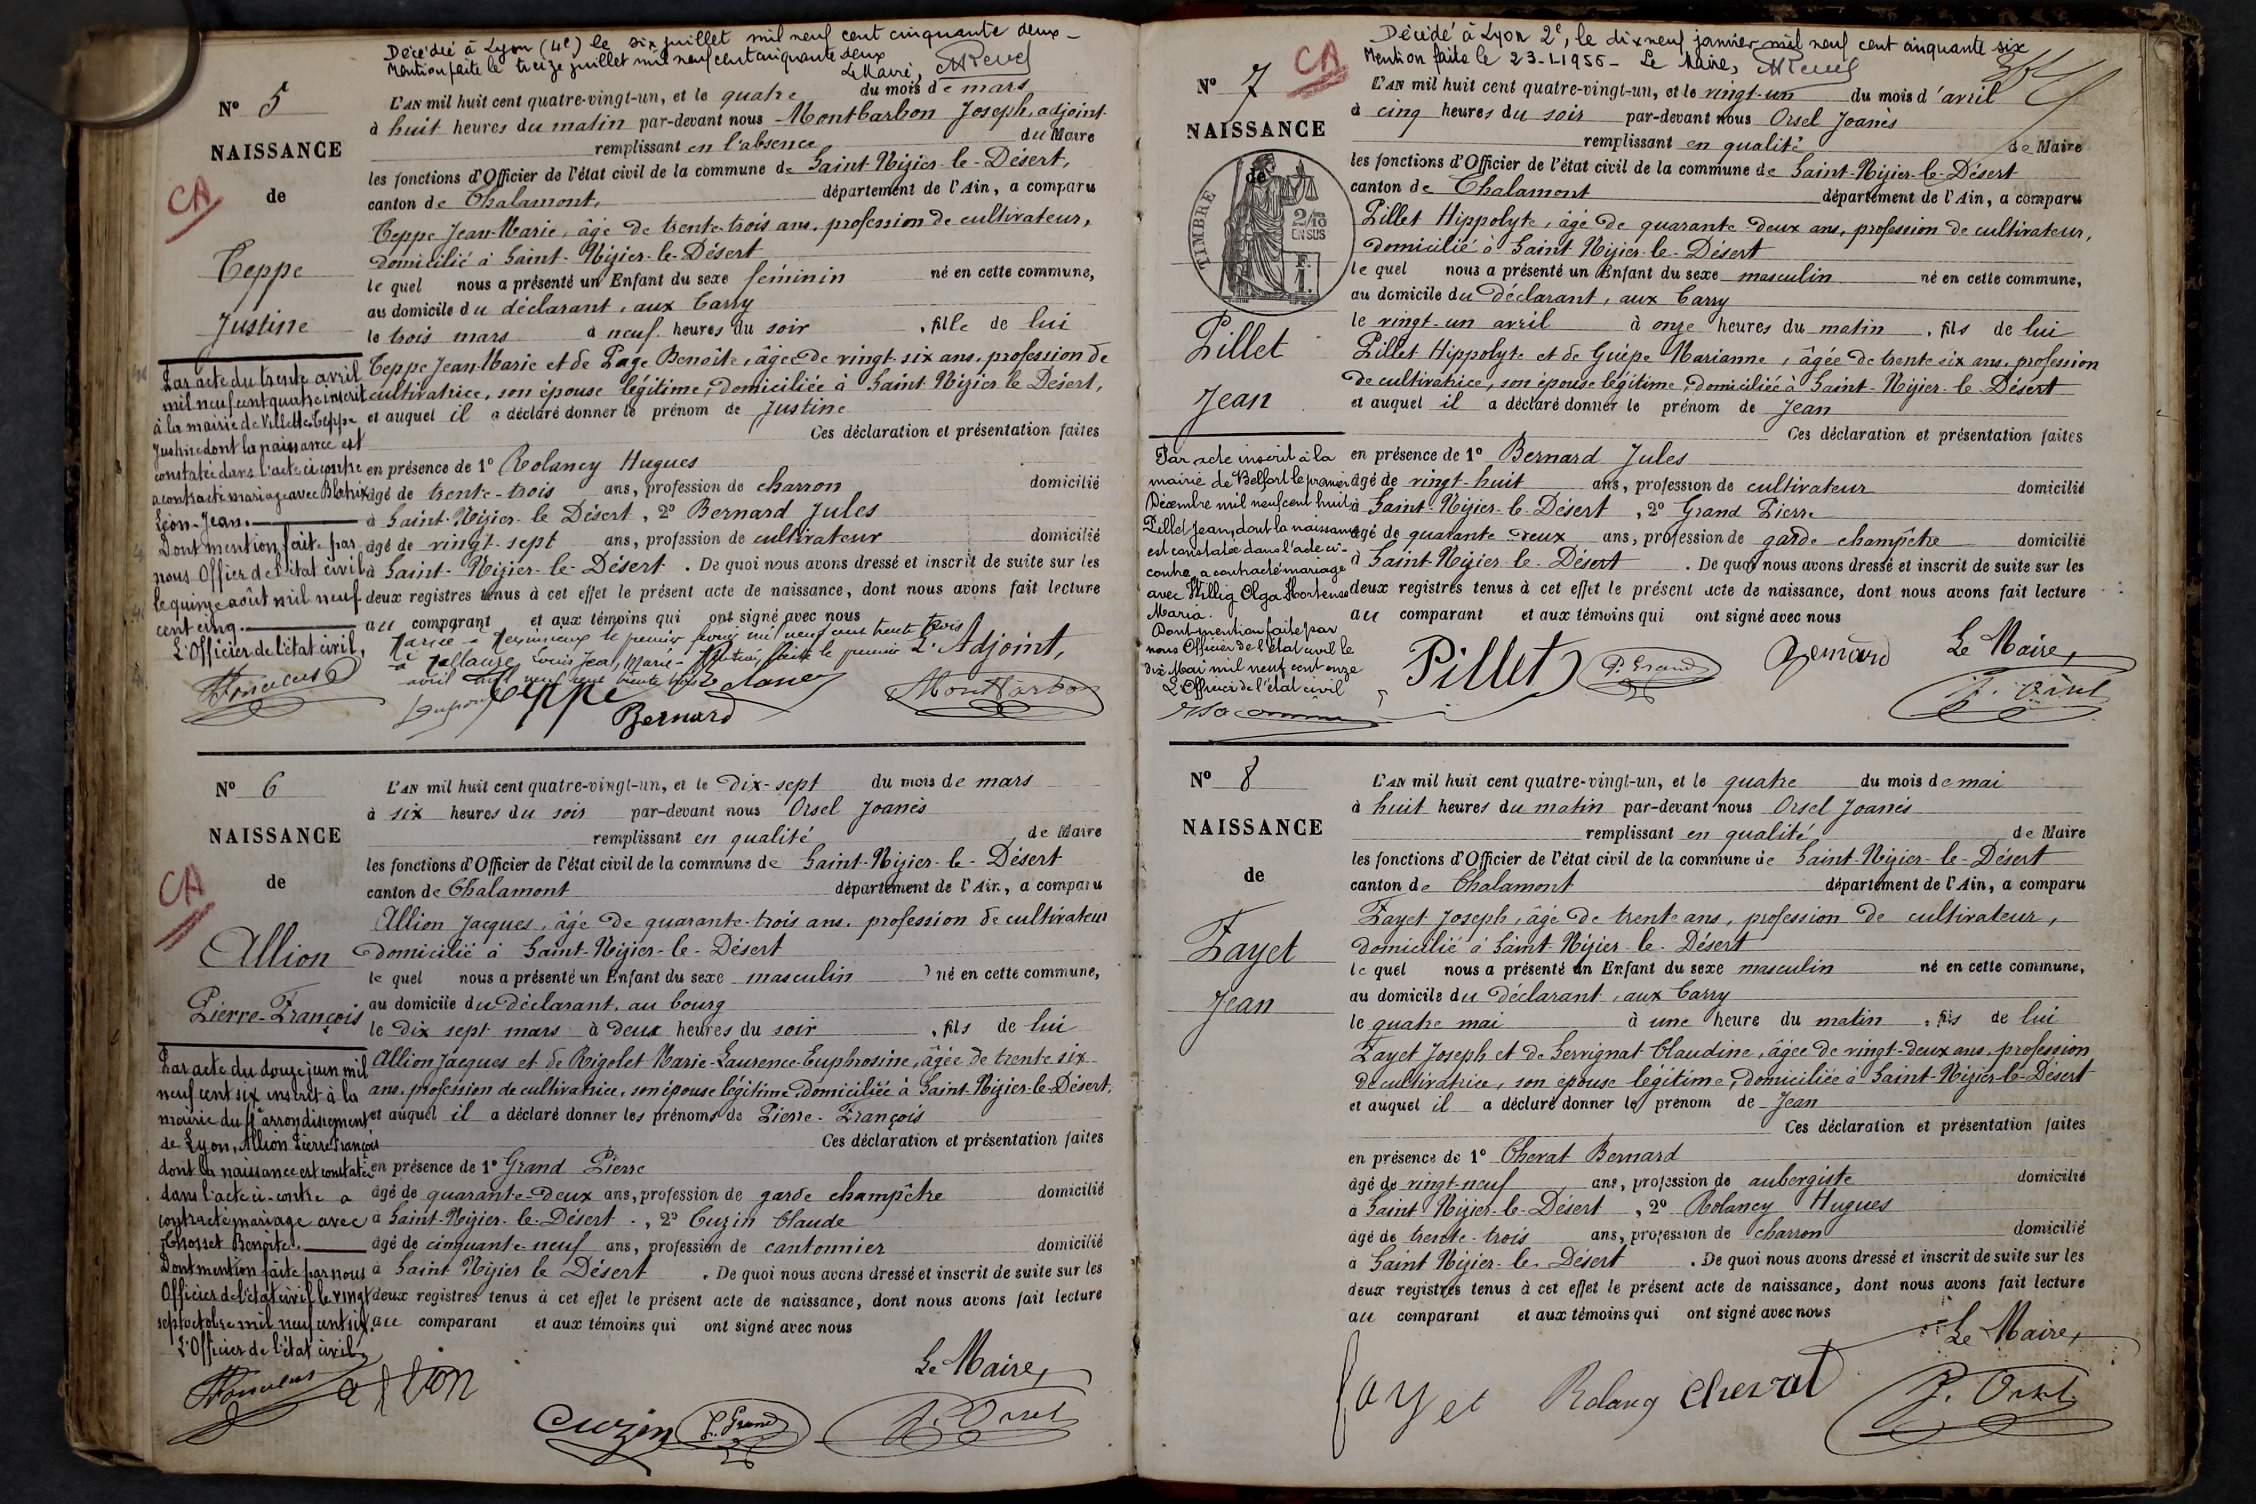 Décédée à Lyon (4e) le six juillet mil neuf cent cinquante deux -
Mention faite le treize juillet mil neuf cent cinquante deux
Le Maire,
N° 5
NAISSANCE
de
CA
Teppe
Justine
L'AN mil huit cent quatre-vingt-un, et le quatre du mois de mars
à huit heures du matin par-devant nous Montbarbon Joseph, adjoint
remplissant en l'absence du Maire
les fonctions d'Officier de l'état civil de la commune de Saint-Nizier-le-Désert,
canton de Chalamont, département de l'Ain, a comparu
Teppe Jean-Marie, âgé de trente-trois ans, profession de cultivateur,
domicilié à Saint-Nizier-le-Désert
le quel nous a présenté un Enfant du sexe féminin né en cette commune,
au domicile du déclarant, aux Carry
le trois mars à neuf heures du soir , fille de lui
Teppe Jean-Marie et de Page Benoîte, âgée de vingt-six ans, profession de
cultivatrice, son épouse légitime, domiciliée à Saint-Nizier le Désert,
et auquel il a déclaré donner le prénom de Justine
Ces déclaration et présentation faites
en présence de 1° Rolancy Hugues
âgé de trente-trois ans, profession de charron domicilié
à Saint-Nizier-le Désert, 2° Bernard Jules
âgé de vingt-sept ans, profession de cultivateur domicilié
à Saint-Nizier-le-Désert. De quoi nous avons dressé et inscrit de suite sur les
deux registres tenus à cet effet le présent acte de naissance, dont nous avons fait lecture
au comparant et aux témoins qui ont signé avec nous
Par acte du trente avril
mil neuf cent quatre inscrit
à la mairie de Villette, Teppe
Justine dont la naissance est
constatée dans l'acte ci-contre
a contracté mariage avec
Léon-Jean.
Dont mention faite par
nous Officier de l'état civil
le quinze août mil neuf
cent cinq.
L'Officier de l'état civil,
Mariée à le premier mil neuf cent trente trois
à Louis Jean, Marie - le premier
avril mil neuf cent trente trois
L'Adjoint,
Teppe Rolancy
Bernard
Montbarbon
N° 6
NAISSANCE
de
CA
Allion
Pierre-François
L'AN mil huit cent quatre-vingt-un, et le dix-sept du mois de mars
à six heures du soir par-devant nous Orsel Joanès
remplissant en qualité de Maire
les fonctions d'Officier de l'état civil de la commune de Saint-Nizier-le-Désert
canton de Chalamont département de l'Ain, a comparu
Allion Jacques, âgé de quarante-trois ans, profession de cultivateur
domicilié à Saint-Nizier-le-Désert
le quel nous a présenté un Enfant du sexe masculin né en cette commune,
au domicile du déclarant, au bourg
le dix sept mars à deux heures du soir , fils de lui
Allion Jacques et de Rigolet Marie-Laurence-Euphrosine, âgée de trente six
ans, profession de cultivatrice, son épouse légitime, domiciliée à Saint-Nizier-le-Désert,
et auquel il a déclaré donner les prénoms de Pierre-François
Ces déclaration et présentation faites
en présence de 1° Grand Pierre
âgé de quarante-deux ans, profession de garde champêtre domicilié
à Saint-Nizier-le-Désert, 2° Cuzin Claude
âgé de cinquante-neuf ans, profession de cantonnier domicilié
à Saint Nizier le Désert. De quoi nous avons dressé et inscrit de suite sur les
deux registres tenus à cet effet le présent acte de naissance, dont nous avons fait lecture
au comparant et aux témoins qui ont signé avec nous
Par acte du douze juin mil
neuf cent six inscrit à la
mairie du arrondissement
de Lyon, Allion Pierre François
dont la naissance est constatée
dans l'acte ci-contre a
contracté mariage avec
Chosset Benoîte.
Dont mention faite par nous
Officier de l'état civil le vingt
sept octobre mil neuf cent six.
L'Officier de l'état civil,
Le Maire,
allion
Cuzin P. Grand J. Orsel
Décédé à Lyon 2e, le dix neuf janvier mil neuf cent cinquante six
Mention faite le 23-1-1956 - Le Maire,
N° 7
CA
NAISSANCE
de
TIMBRE
2/10
EN SUS
F.
1.
Pillet
Jean
L'AN mil huit cent quatre-vingt-un, et le vingt-un du mois d'avril
à cinq heures du soir par-devant nous Orsel Joanès
remplissant en qualité de Maire
les fonctions d'Officier de l'état civil de la commune de Saint-Nizier-le-Désert
canton de Chalamont département de l'Ain, a comparu
Pillet Hippolyte, âgé de quarante deux ans, profession de cultivateur,
domicilié à Saint Nizier-le-Désert
le quel nous a présenté un Enfant du sexe masculin né en cette commune,
au domicile du déclarant, aux Carry
le vingt-un avril à onze heures du matin , fils de lui
Pillet Hippolyte et de Guépe Marianne, âgée de trente six ans, profession
de cultivatrice, son épouse légitime, domiciliée à Saint-Nizier-le Désert
et auquel il a déclaré donner le prénom de Jean
Ces déclaration et présentation faites
en présence de 1° Bernard Jules
âgé de vingt-huit ans, profession de cultivateur domicilié
à Saint-Nizier-le-Désert, 2° Grand Pierre
âgé de quarante deux ans, profession de garde champêtre domicilié
à Saint-Nizier-le-Désert. De quoi nous avons dressé et inscrit de suite sur les
deux registres tenus à cet effet le présent acte de naissance, dont nous avons fait lecture
au comparant et aux témoins qui ont signé avec nous
Par acte inscrit à la
mairie de Belfort le premier
Décembre mil neuf cent huit
Pillet Jean, dont la naissance
est constatée dans l'acte ci-
contre, a contracté mariage
avec Willig Olga Hortense
Maria.
Dont mention faite par
nous Officier de l'état civil le
dix Mai mil neuf cent onze
L'Officier de l'état civil
Pillet P. Grand Bernard Le Maire,
J. Orsel
N° 8
NAISSANCE
de
Fayet
Jean
L'AN mil huit cent quatre-vingt-un, et le quatre du mois de mai
à huit heures du matin par-devant nous Orsel Joanès
remplissant en qualité de Maire
les fonctions d'Officier de l'état civil de la commune de Saint-Nizier-le-Désert
canton de Chalamont département de l'Ain, a comparu
Fayet Joseph, âgé de trente ans, profession de cultivateur,
domicilié à Saint-Nizier-le-Désert
le quel nous a présenté un Enfant du sexe masculin né en cette commune,
au domicile du déclarant, aux Carry
le quatre mai à une heure du matin , fils de lui
Fayet Joseph et de Servignat Claudine, âgée de vingt-deux ans, profession
de cultivatrice, son épouse légitime, domiciliée à Saint-Nizier-le-Désert
et auquel il a déclaré donner le prénom de Jean
Ces déclaration et présentation faites
en présence de 1° Chevat Bernard
âgé de vingt-neuf ans, profession de aubergiste domicilié
à Saint Nizier-le-Désert, 2° Rolancy Hugues
âgé de trente-trois ans, profession de charron domicilié
à Saint Nizier-le-Désert. De quoi nous avons dressé et inscrit de suite sur les
deux registres tenus à cet effet le présent acte de naissance, dont nous avons fait lecture
au comparant et aux témoins qui ont signé avec nous
Le Maire,
fayet Rolancy chevat J. Orsel